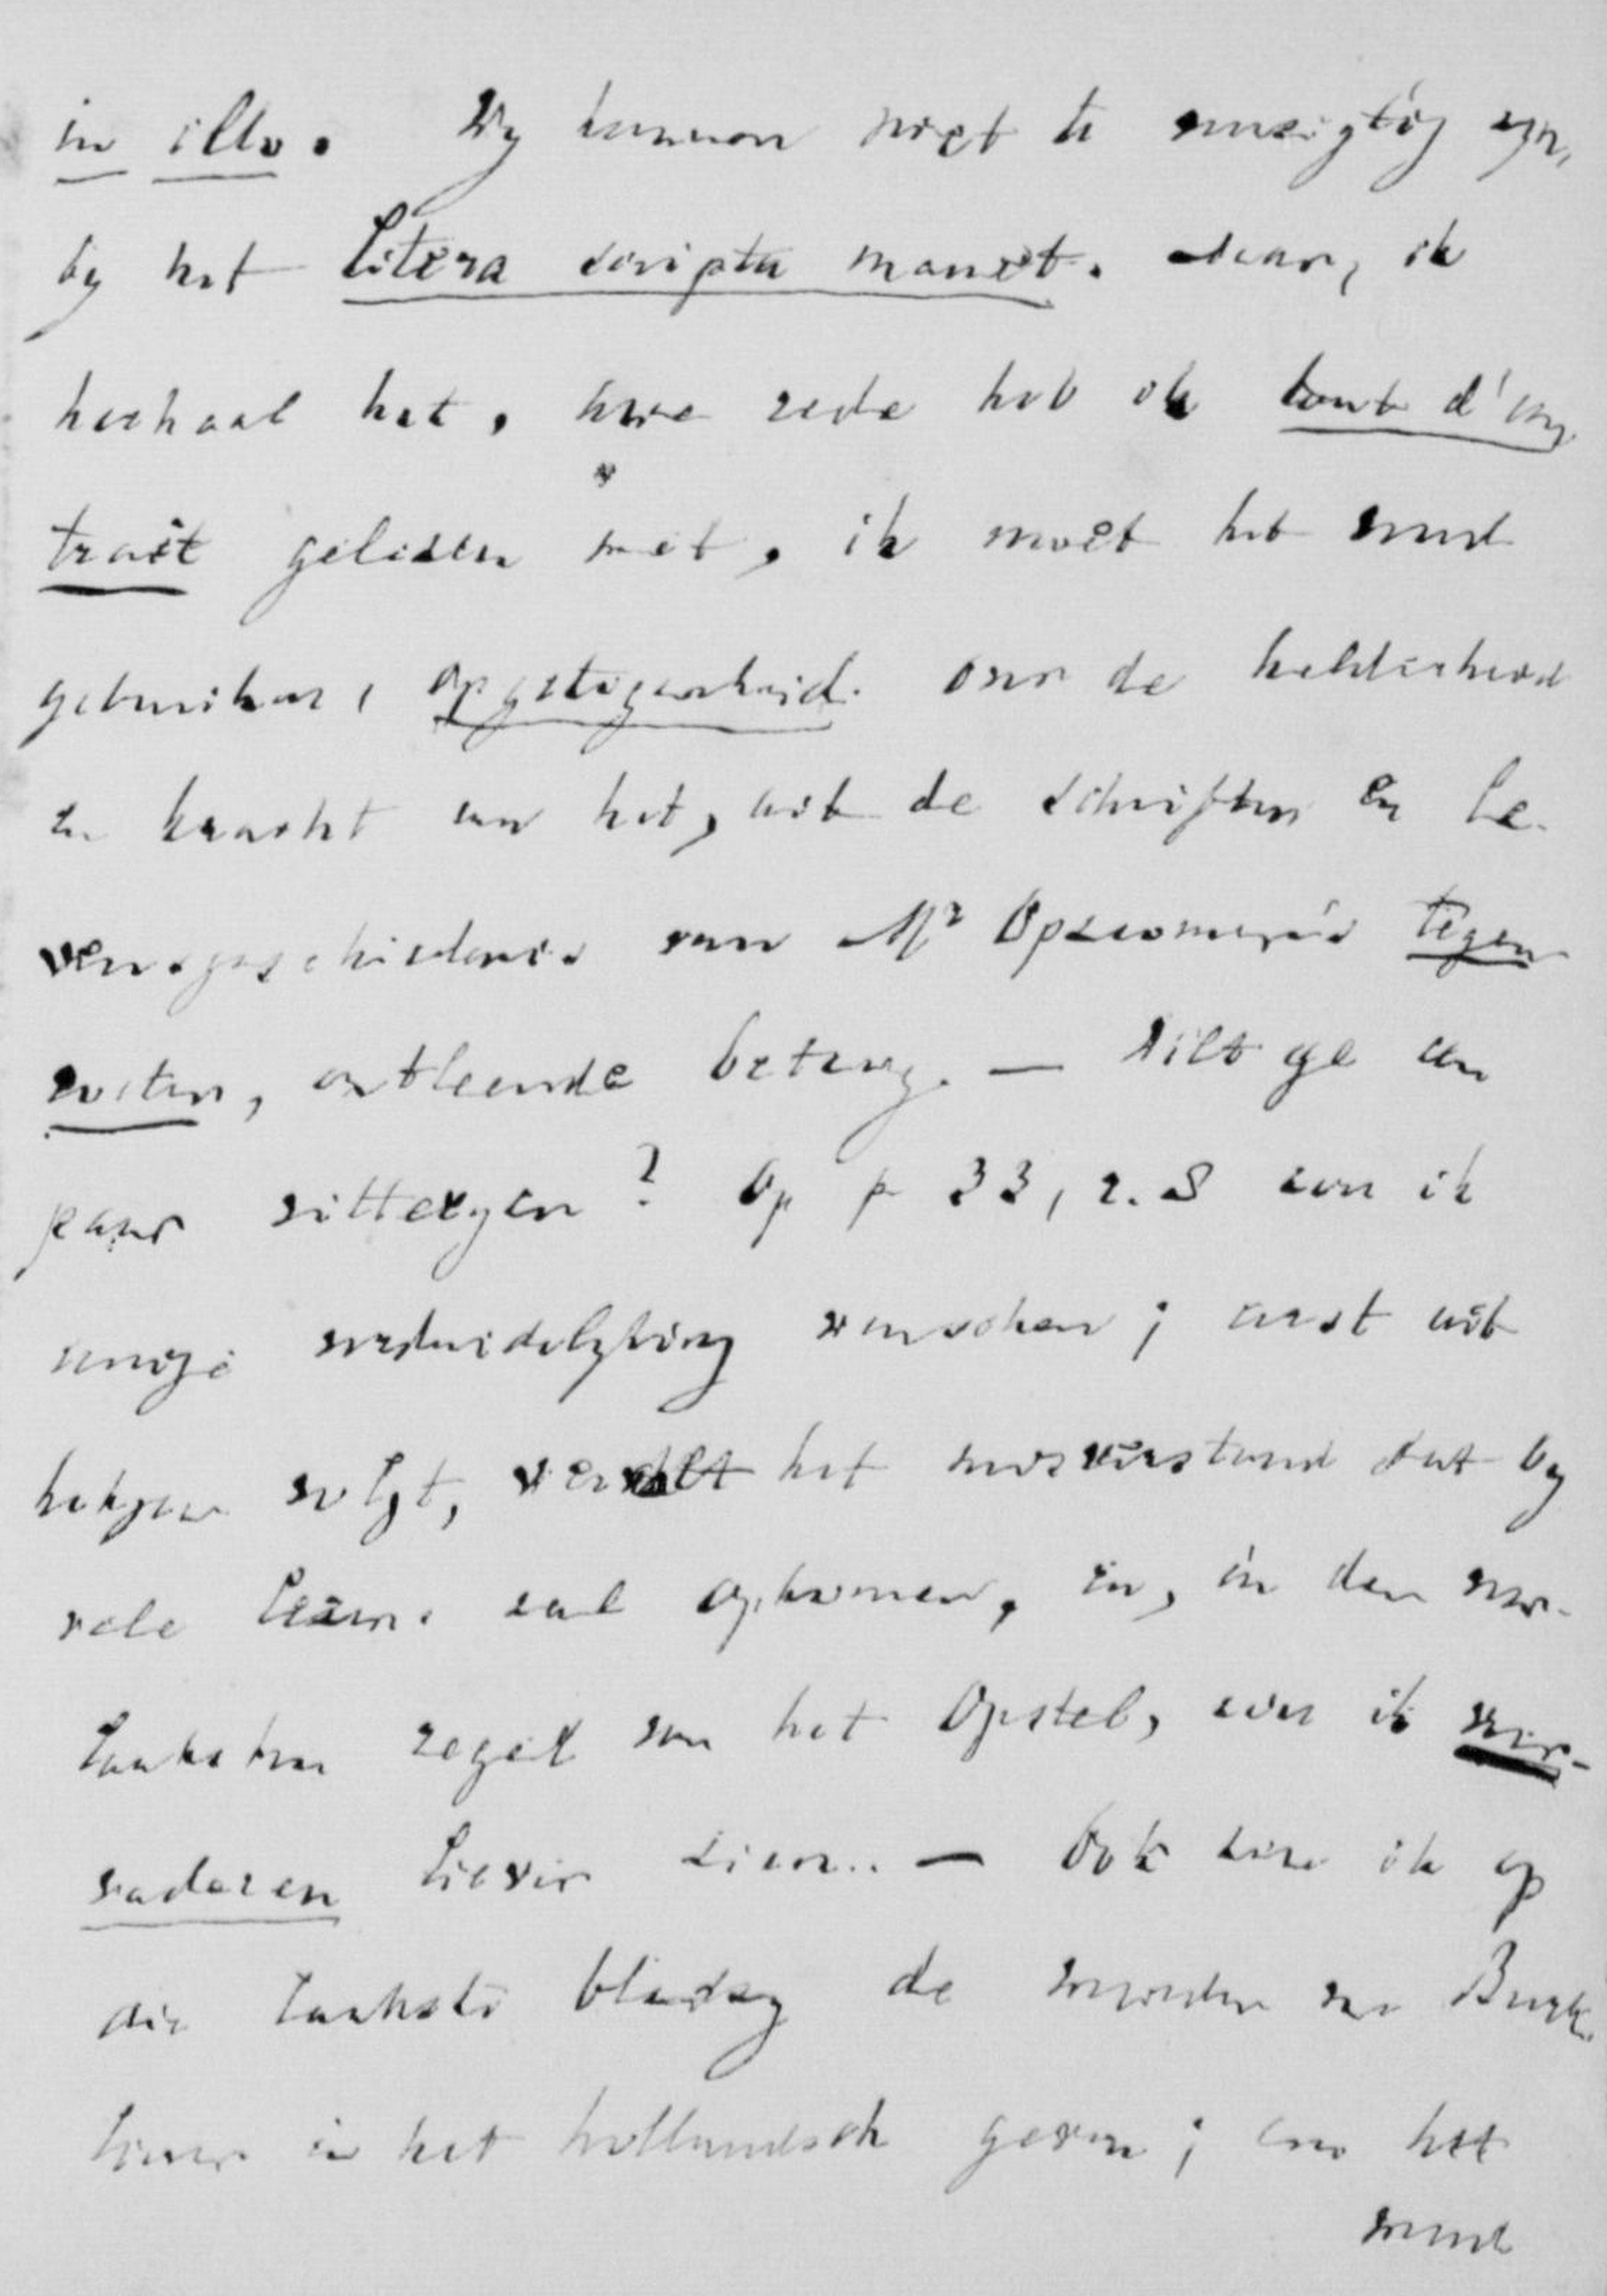 in illo. Wy kunnen niet te omzigtig zyn,
by het Litera scripta manet. Maar, ik
herhaal het, uwe rede heb ik tout d'un
trait gelezen met, ik moet het woord
gebruiken, opgetogenheid over de helderheid
en kracht van het, uit de schriften en le-
vensgeschiedenis van Mr Opzoomer's tegen-
voeter, ontleende betoog. — Wilt ge een
paar vitteryen? Op p 33, r. 8 zou ik
eenige verduidelyking wenschen; eerst uit
hetgeen volgt, verdelt het misverstand dat by
vele lezers zal opkomen, en, in den voor-
laatsten regel van het Opstel, zou ik voor-
vaderen liever zien. — Ook zou ik op
die laatste bladzy de woorden van
in het hollandsch geven; en het
woord